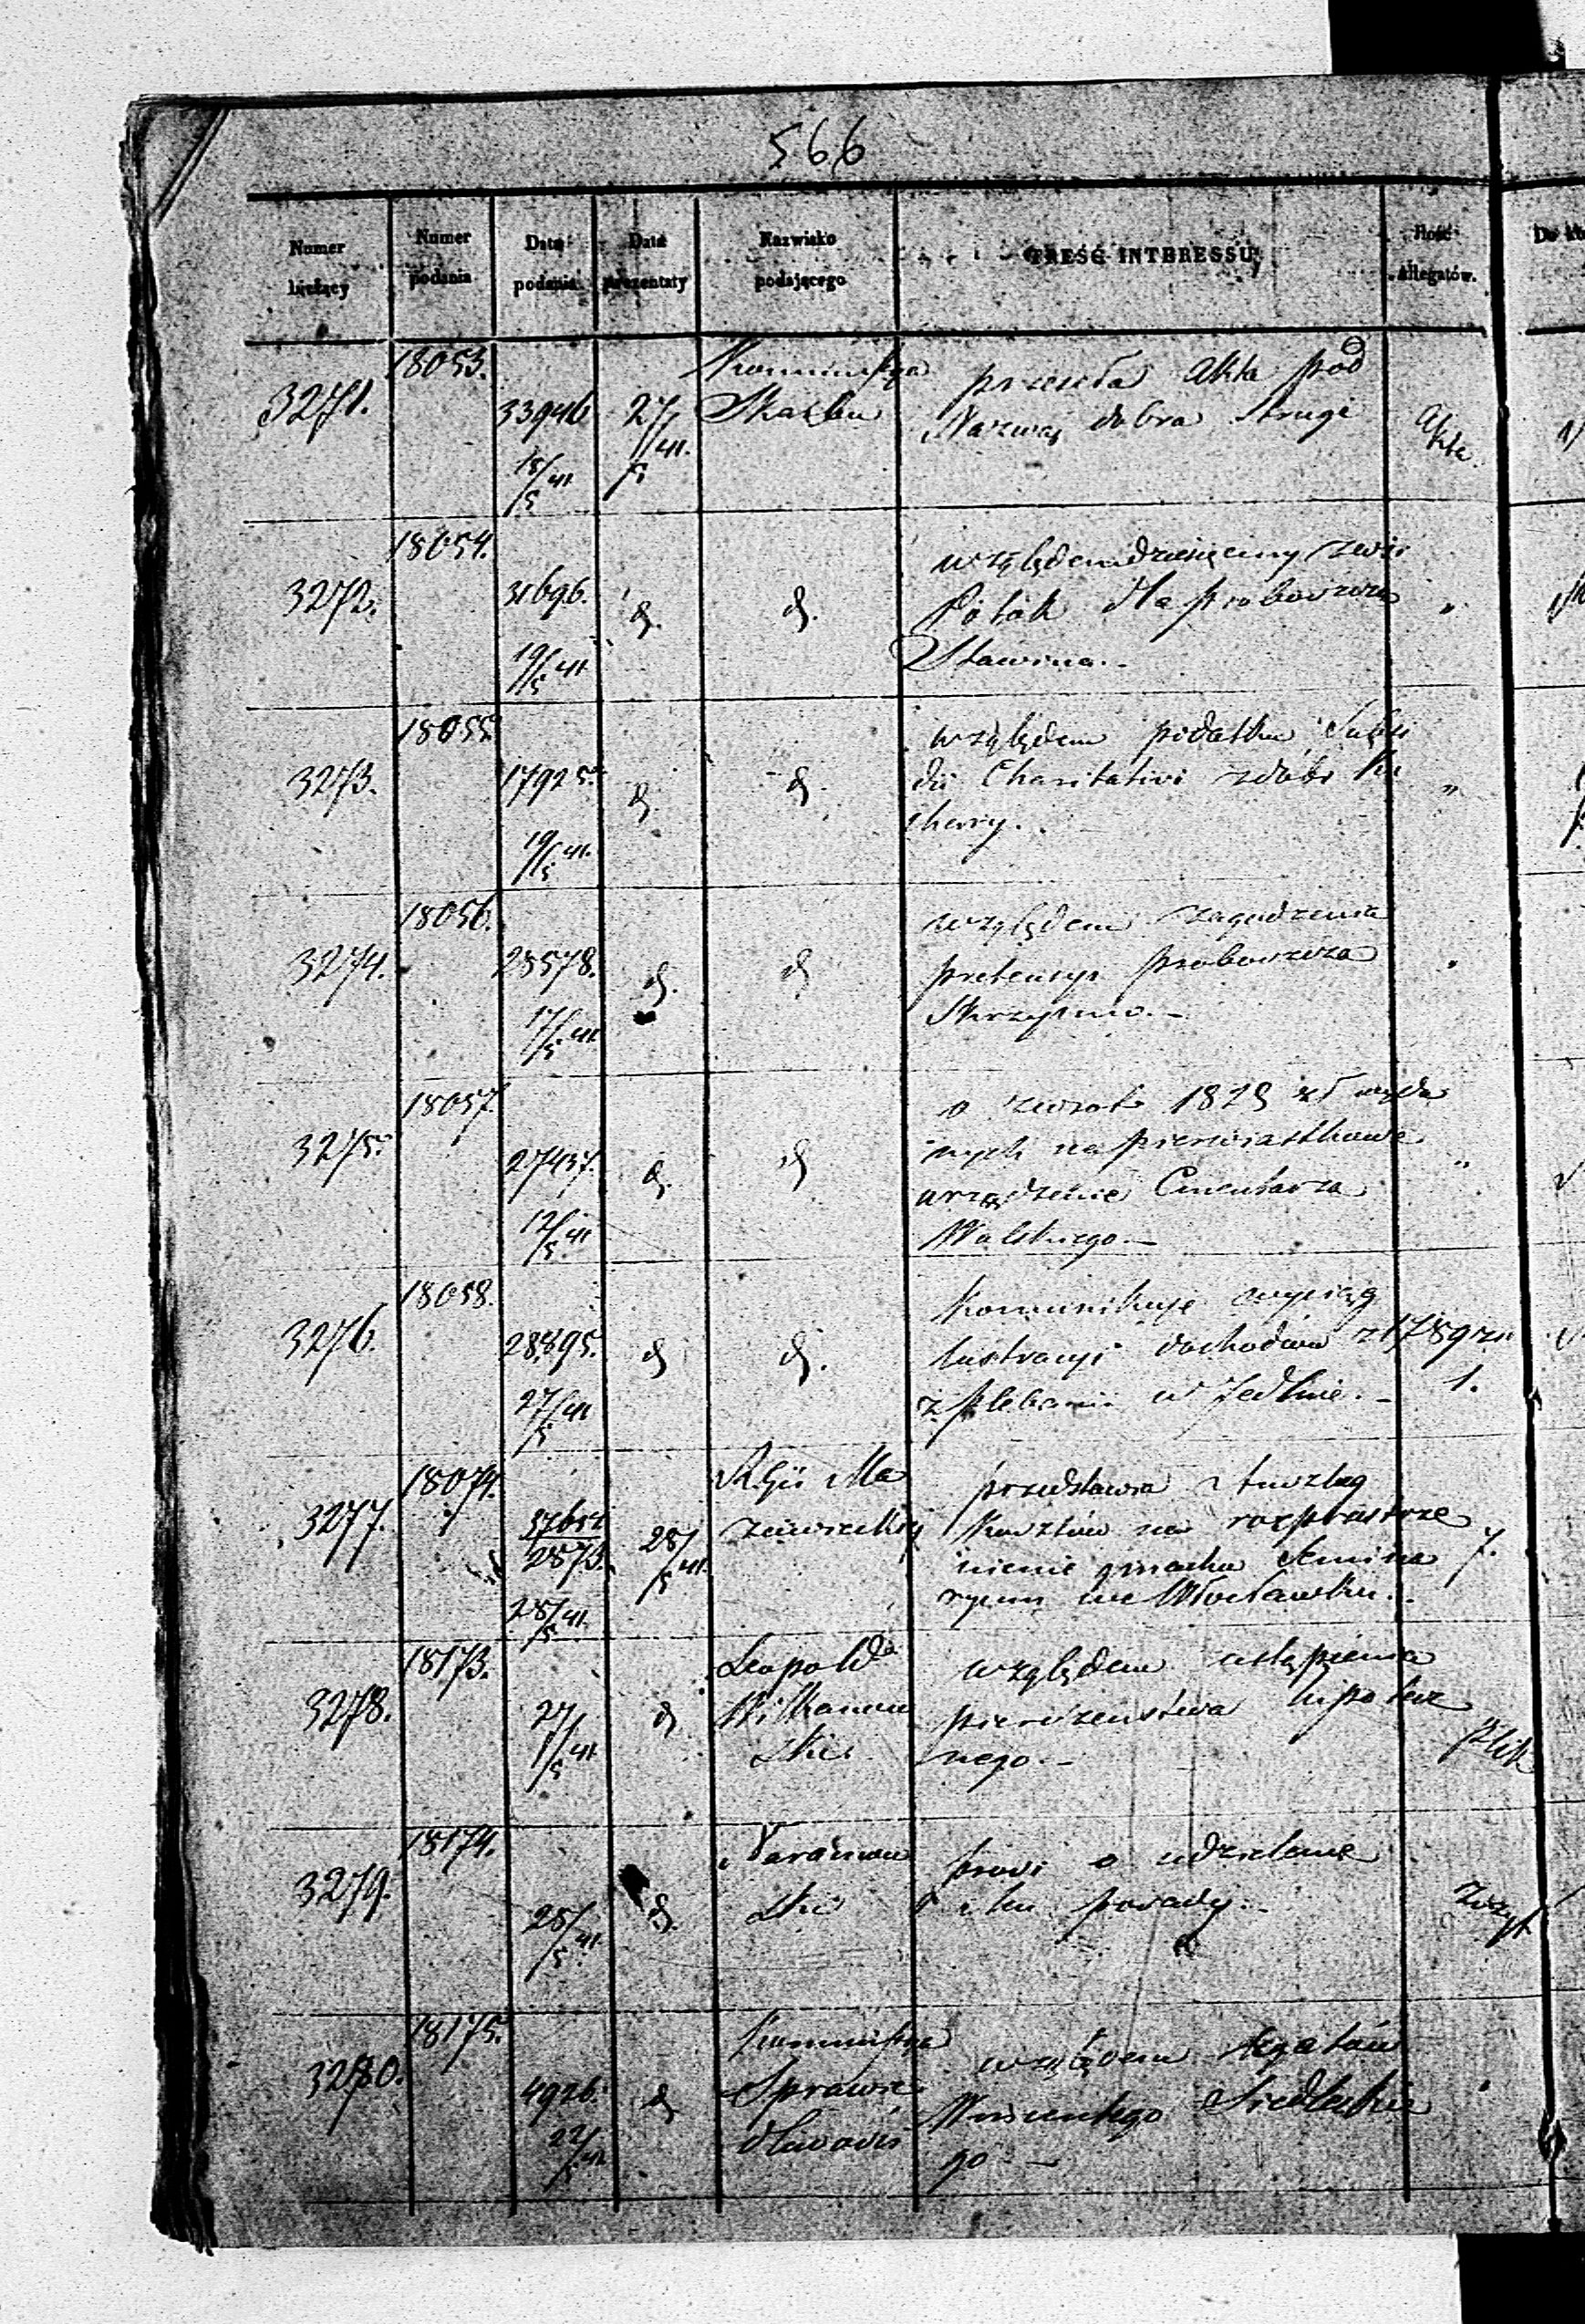 566
Numer bieżący
Numer podania
Data podania
Data prezentaty
Nazwisko podającego
TREŚĆ INTERESSU
Ilość allegatów.
3271.
18053.
33946
18/5 41
27/5 41.
Kommissya
Skarbu
przesyła Akta pod
Nazwą dobra Strugi
Akta
3272.
18054.
31696.
19/5 41
d.
d.
względem dziesięciny zwsi
Potok dla proboszcza
Stawina.-
"
3273.
18055.
17925.
19/5 41.
d.
d.
względem podatku Subsi
dii Charitativi zdóbr Ku
chary.
"
3274.
18056.
28578.
17/5 41
d.
d
względem zagodzenia
pretensyi proboszcza
Skrzynno.-
"
3275.
18057.
27437.
12/5 41
d.
d
o zwrot 1829 zł wyda
nych na pierwiastkowe
urządzenie Cmentarza
Wolskiego.-
"
3276.
18058.
28895.
27/5 41
d
d.
Kommunikuje wyciąg
lustracyi dochodów z 1789 rr.
z plebanii w Jedlnie.-
1.
3277.
18074.
2873.
28/5 41.
28/5 41.
Rząd Ma
zowiecki
przedstawia Anszlag
Kosztów na rozprostrze
nienie gmachu Semina
ryum we Włocławku.
7.
3278.
18173.
27/5 41
d
Leopold
ski
względem ustąpienia
pierwszeństwa hipotecz
nego.-
plik
3279.
18174.
28/5 41.
d.
Taranow
ski
prosi o udzielenie
mu posady.-
zeszyt
3280.
18175.
4926.
22/5 41
d
Kommissya
Sprawie
dliwości
względem legatów
Wincentego Siedleckie
go.-
"